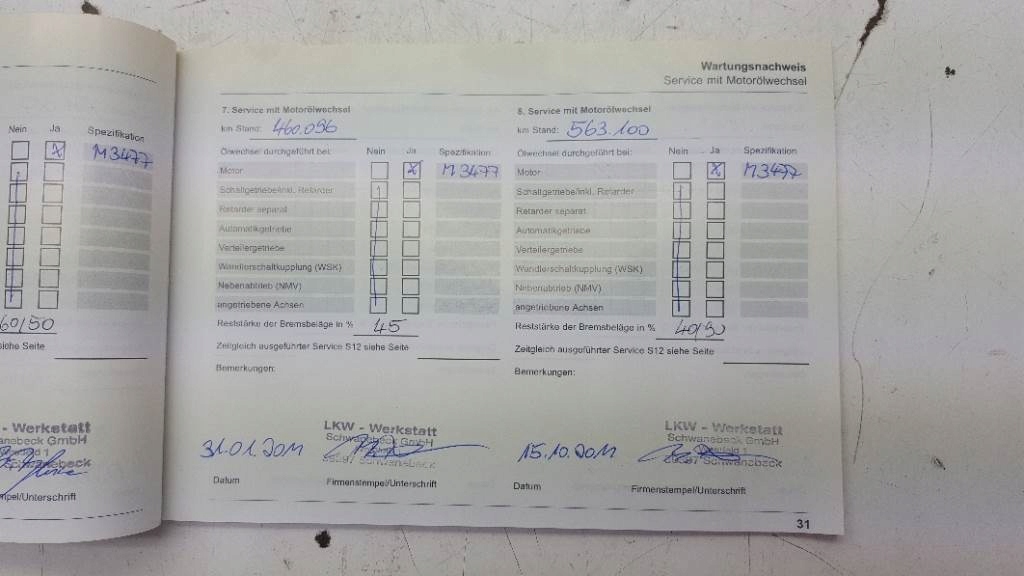 Nein Ja Spezifikation
X M3477
60/50
siehe Seite
- Werkstatt
GmbH
Wartungsnachweis
Service mit Motorölwechsel
7. Service mit Motorölwechsel
km Stand: 460.096
Ölwechsel durchgeführt bei: Nein Ja Spezifikation
Motor X M3477
Schaltgetriebe/inkl. Retarder
Retarder separat
Automatikgetriebe
Verteilergetriebe
Wandlerschaltkupplung (WSK)
Nebenabtrieb (NMV)
angetriebene Achsen
Reststärke der Bremsbeläge in % 45
Zeitgleich ausgeführter Service S12 siehe Seite
Bemerkungen:
LKW - Werkstatt
Schwanebeck GmbH
Schwanebeck
31.01.2011
Datum Firmenstempel/Unterschrift
8. Service mit Motorölwechsel
km Stand: 563.100
Ölwechsel durchgeführt bei: Nein Ja Spezifikation
Motor X M3477
Schaltgetriebe/inkl. Retarder
Retarder separat
Automatikgetriebe
Verteilergetriebe
Wandlerschaltkupplung (WSK)
Nebenabtrieb (NMV)
angetriebene Achsen
Reststärke der Bremsbeläge in % 40/30
Zeitgleich ausgeführter Service S12 siehe Seite
Bemerkungen:
LKW - Werkstatt
Schwanebeck GmbH
Schwanebeck
15.10.2011
Datum Firmenstempel/Unterschrift
31